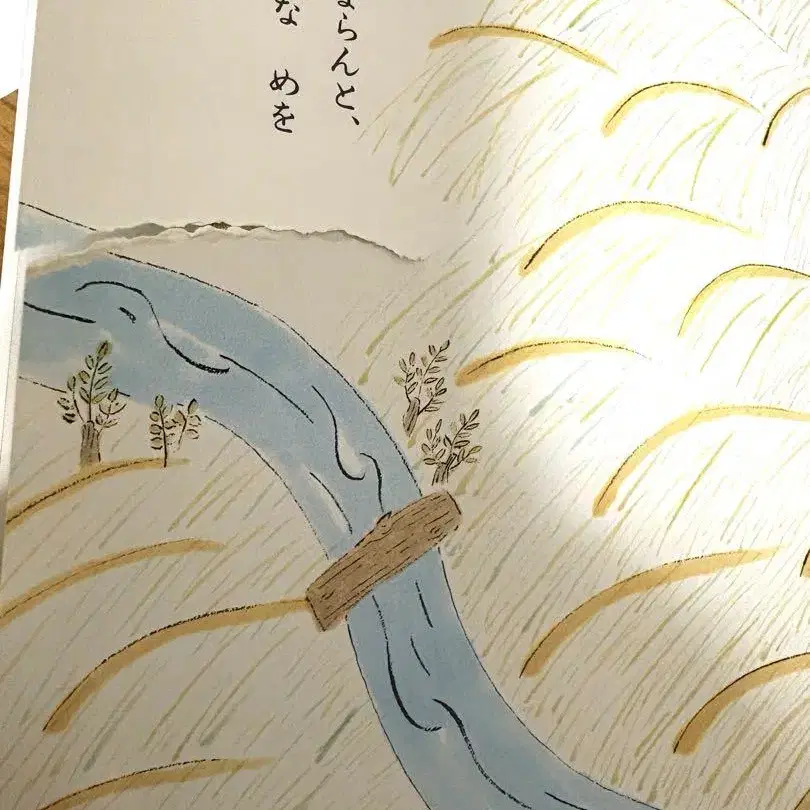 らんと、
な めを